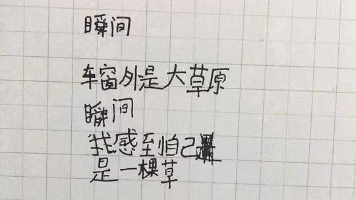 瞬间
车窗外是大草原
瞬间
我感至自己
是一棵草